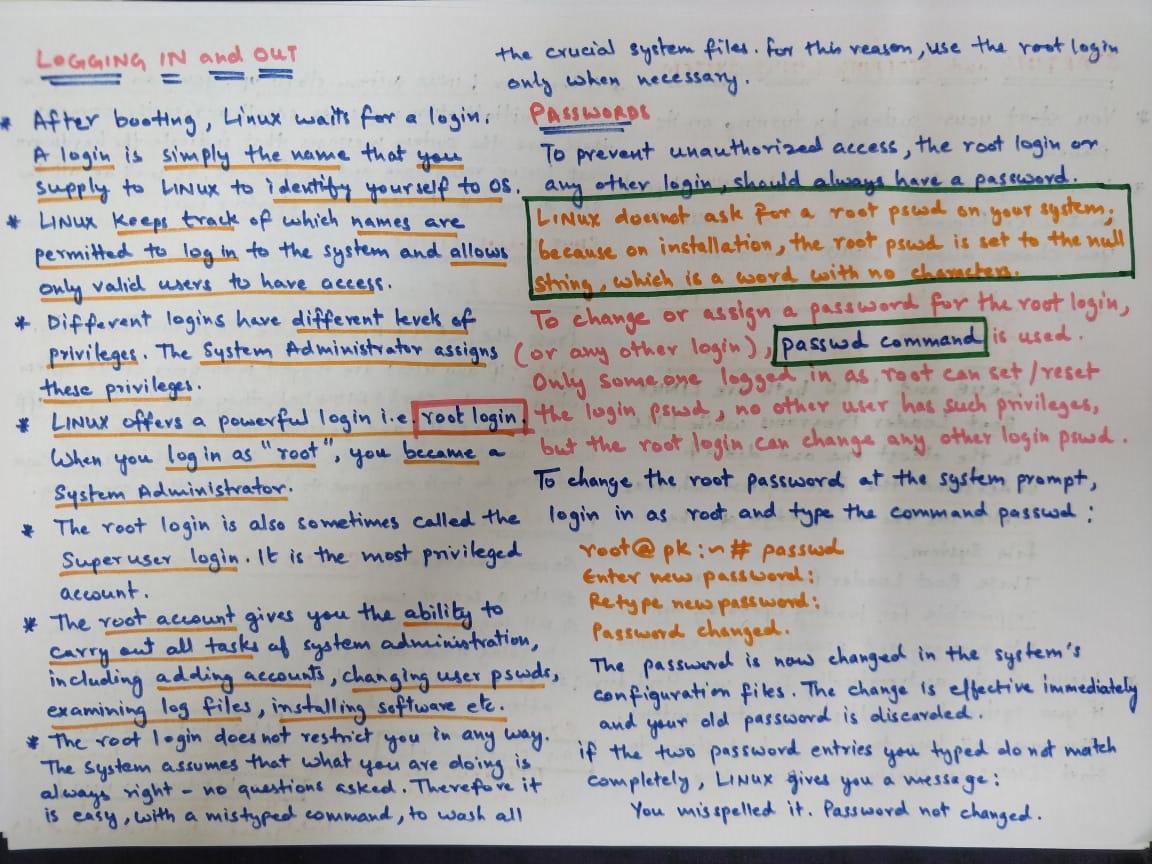 LOGGING IN and OUT
* After booting, Linux waits for a login.
A login is simply the name that you
supply to LINUX to identify yourself to OS.
* LINUX keeps track of which names are
permitted to log in to the system and allows
only valid users to have access.
* Different logins have different levels of
privileges. The System Administrator assigns
these privileges.
* LINUX offers a powerful login i.e. root login
When you log in as "root", you became a
System Administrator.
* The root login is also sometimes called the
Superuser login. It is the most privileged
account.
* The root account gives you the ability to
carry out all tasks of system administration,
including adding accounts, changing user pswds,
examining log files, installing software etc.
* The root login does not restrict you in any way.
The system assumes that what you are doing is
always right - no questions asked. Therefore it
is easy, with a mistyped command, to wash all
the crucial system files. for this reason, use the root login
only when necessary.
PASSWORDS
To prevent unauthorized access, the root login or
any other login, should always have a password.
LINUX doesnot ask for a root pswd on your system,
because on installation, the root pswd is set to the null
string, which is a word with no characters.
To change or assign a password for the root login,
(or any other login), passwd command is used.
Only someone logged in as root can set/reset
the login pswd, no other user has such privileges,
but the root login can change any other login pswd.
To change the root password at the system prompt,
login in as root and type the command passwd:
root@pk:~# passwd
Enter new password:
Retype new password:
Password changed.
The password is now changed in the system's
configuration files. The change is effective immediately
and your old password is discarded.
if the two password entries you typed do not match
completely, LINUX gives you a message:
You misspelled it. Password not changed.